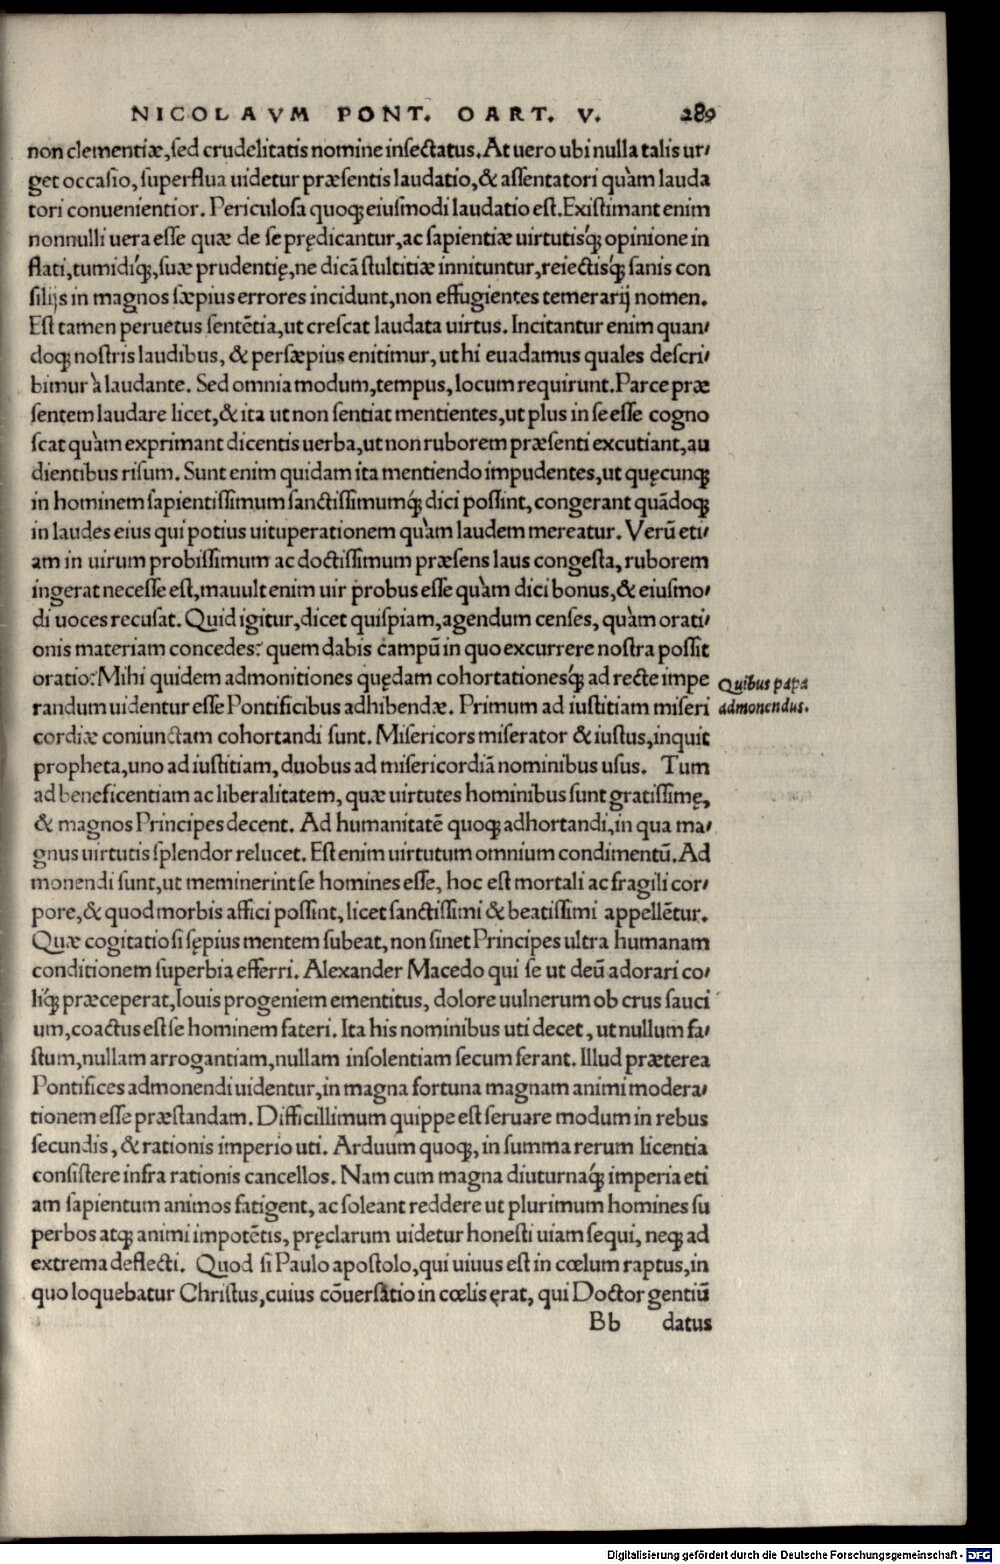 NICOLAVM PONT. OART. V. 289
non clementiæ, sed crudelitatis nomine insectatus. At uero ubi nulla talis ur/
get occasio, superflua uidetur præsentis laudatio, & assentatori quàm lauda
tori conuenientior. Periculosa quoq; eiusmodi laudatio est. Existimant enim
nonnulli uera esse quæ de se prędicantur, ac sapientiæ uirtutisq́; opinione in
flati, tumidiq́;, suæ prudentię, ne dicā stultitiæ innituntur, reiectisq́; sanis con
silijs in magnos sæpius errores incidunt, non effugientes temerarij nomen.
Est tamen peruetus sentētia, ut crescat laudata uirtus. Incitantur enim quan/
doq; nostris laudibus, & persæpius enitimur, ut hi euadamus quales descri/
bimur à laudante. Sed omnia modum, tempus, locum requirunt. Parce præ
sentem laudare licet, & ita ut non sentiat mentientes, ut plus in se esse cogno
scat quàm exprimant dicentis uerba, ut non ruborem præsenti excutiant, au
dientibus risum. Sunt enim quidam ita mentiendo impudentes, ut quęcunq;
in hominem sapientissimum sanctissimumq́; dici possint, congerant quādoq;
in laudes eius qui potius uituperationem quàm laudem mereatur. Verū eti/
am in uirum probissimum ac doctissimum præsens laus congesta, ruborem
ingerat necesse est, mauult enim uir probus esse quàm dici bonus, & eiusmo/
di uoces recusat. Quid igitur, dicet quispiam, agendum censes, quàm orati/
onis materiam concedes? quem dabis campū in quo excurrere nostra possit
oratio? Mihi quidem admonitiones quędam cohortationesq́; ad recte impe
Quibus papa
randum uidentur esse Pontificibus adhibendæ. Primum ad iustitiam miseri
admonendus.
cordiæ coniunctam cohortandi sunt. Misericors miserator & iustus, inquit
propheta, uno ad iustitiam, duobus ad misericordiā nominibus usus. Tum
ad beneficentiam ac liberalitatem, quæ uirtutes hominibus sunt gratissimę,
& magnos Principes decent. Ad humanitatē quoq; adhortandi, in qua ma/
gnus uirtutis splendor relucet. Est enim uirtutum omnium condimentū. Ad
monendi sunt, ut meminerint se homines esse, hoc est mortali ac fragili cor/
pore, & quod morbis affici possint, licet sanctissimi & beatissimi appellētur.
Quæ cogitatio si sępius mentem subeat, non sinet Principes ultra humanam
conditionem superbia efferri. Alexander Macedo qui se ut deū adorari co/
liq́; præceperat, Iouis progeniem ementitus, dolore uulnerum ob crus sauci
um, coactus est se hominem fateri. Ita his nominibus uti decet, ut nullum fa/
stum, nullam arrogantiam, nullam insolentiam secum ferant. Illud præterea
Pontifices admonendi uidentur, in magna fortuna magnam animi modera/
tionem esse præstandam. Difficillimum quippe est seruare modum in rebus
secundis, & rationis imperio uti. Arduum quoq;, in summa rerum licentia
consistere infra rationis cancellos. Nam cum magna diuturnaq́; imperia eti
am sapientum animos fatigent, ac soleant reddere ut plurimum homines su
perbos atq; animi impotētis, pręclarum uidetur honesti uiam sequi, neq; ad
extrema deflecti. Quod si Paulo apostolo, qui uiuus est in cœlum raptus, in
quo loquebatur Christus, cuius cōuersatio in cœlis ęrat, qui Doctor gentiū
Bb datus
Digitalisierung gefördert durch die Deutsche Forschungsgemeinschaft - DFG